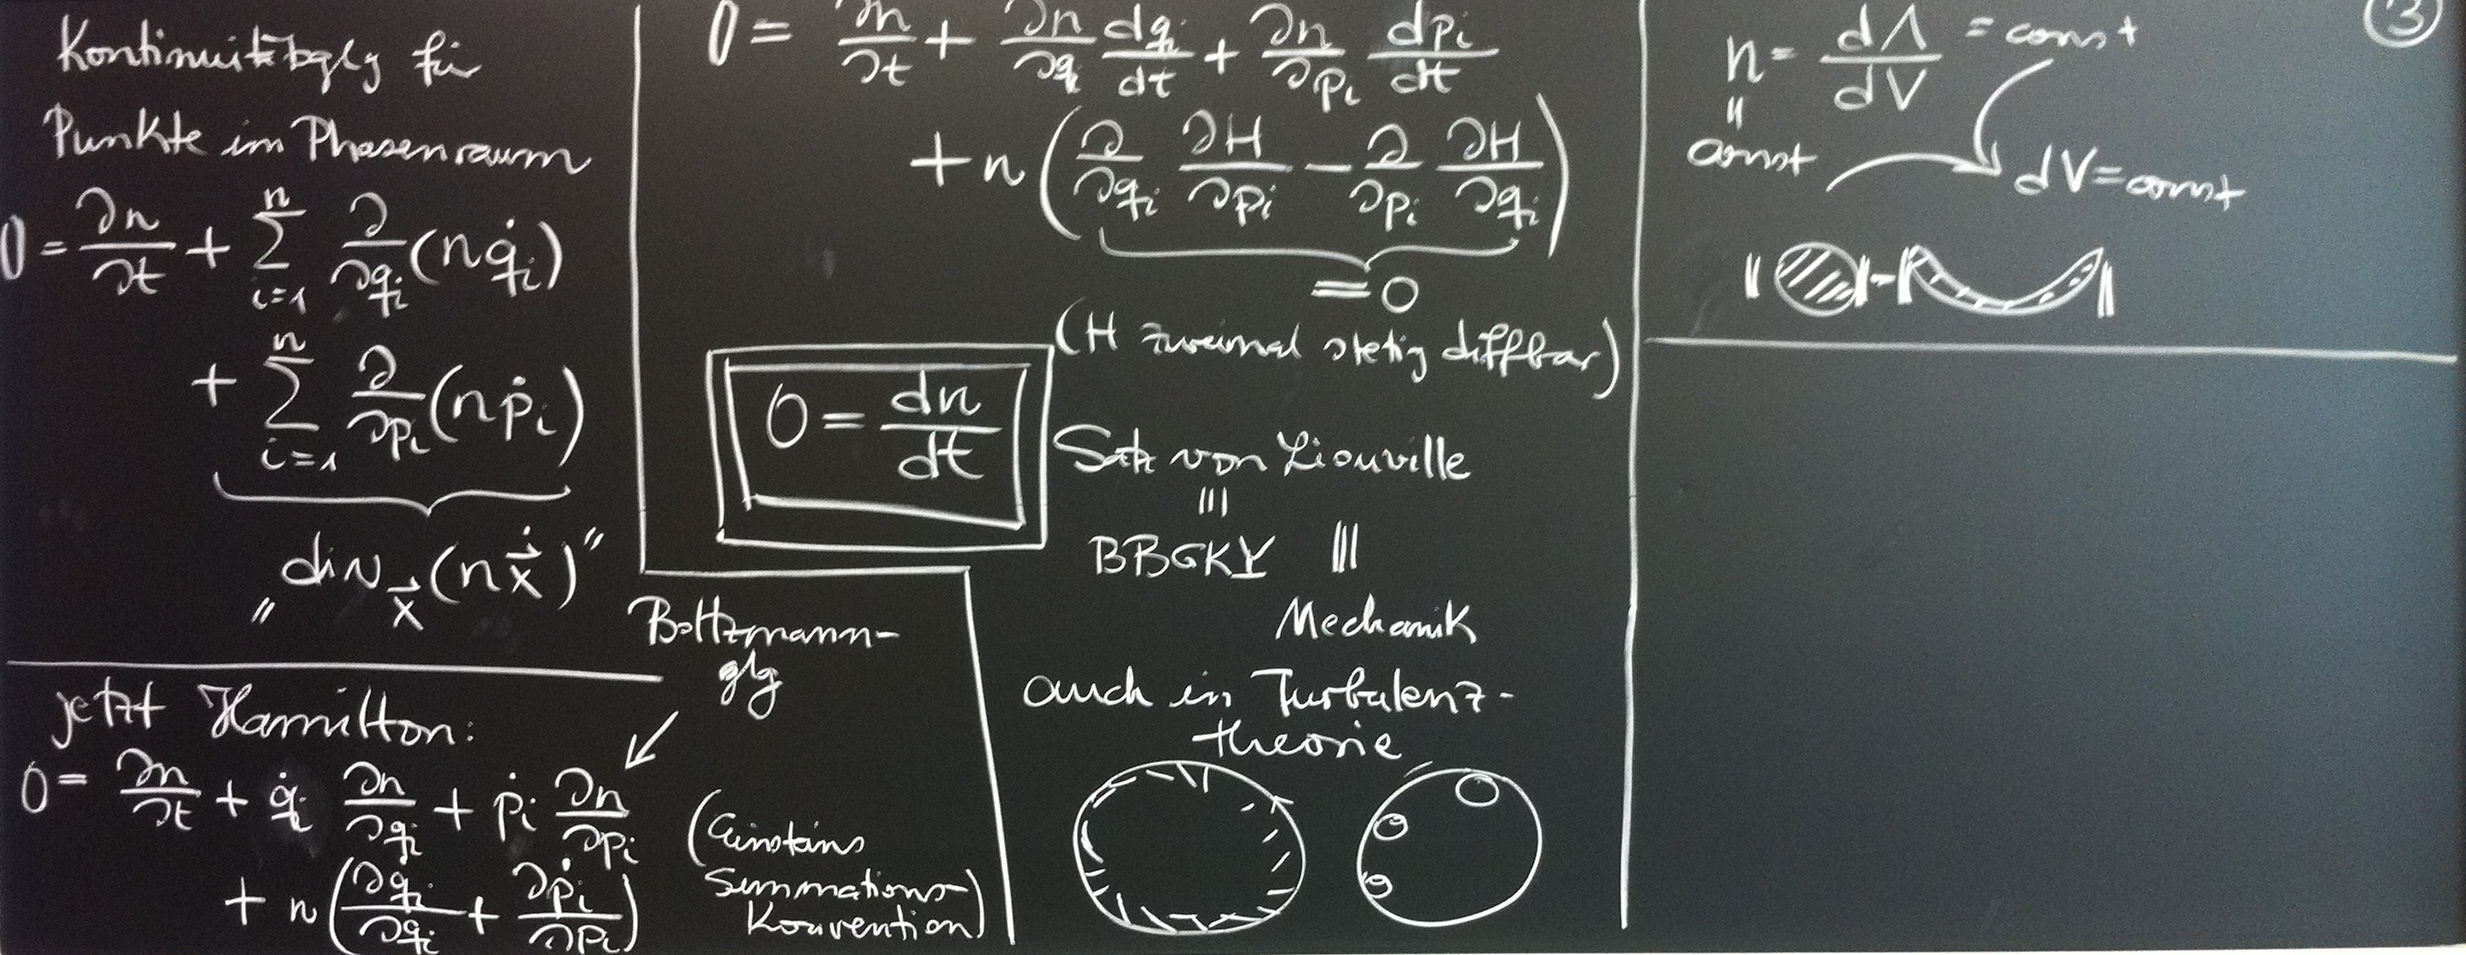 Kontinuitätsglg für
Punkte im Phasenraum
0 = ∂n/∂t + Σ_{i=1}^{n} ∂/∂q_i (n q̇_i)
+ Σ_{i=1}^{n} ∂/∂p_i (n ṗ_i)
„div_x⃗ (n ẋ⃗)"
jetzt Hamilton:
0 = ∂n/∂t + q̇_i ∂n/∂q_i + ṗ_i ∂n/∂p_i
+ n (∂q̇_i/∂q_i + ∂ṗ_i/∂p_i)
Boltzmann-
glg
(Einsteins
Summations-
Konvention)
0 = ∂n/∂t + ∂n/∂q_i dq_i/dt + ∂n/∂p_i dp_i/dt
+ n (∂/∂q_i ∂H/∂p_i − ∂/∂p_i ∂H/∂q_i)
= 0
(H zweimal stetig diffbar)
0 = dn/dt
Satz von Liouville
≡
BBGKY ≡
Mechanik
auch in Turbulenz-
theorie
③
n = dΛ/dV = const
=
const
dV = const